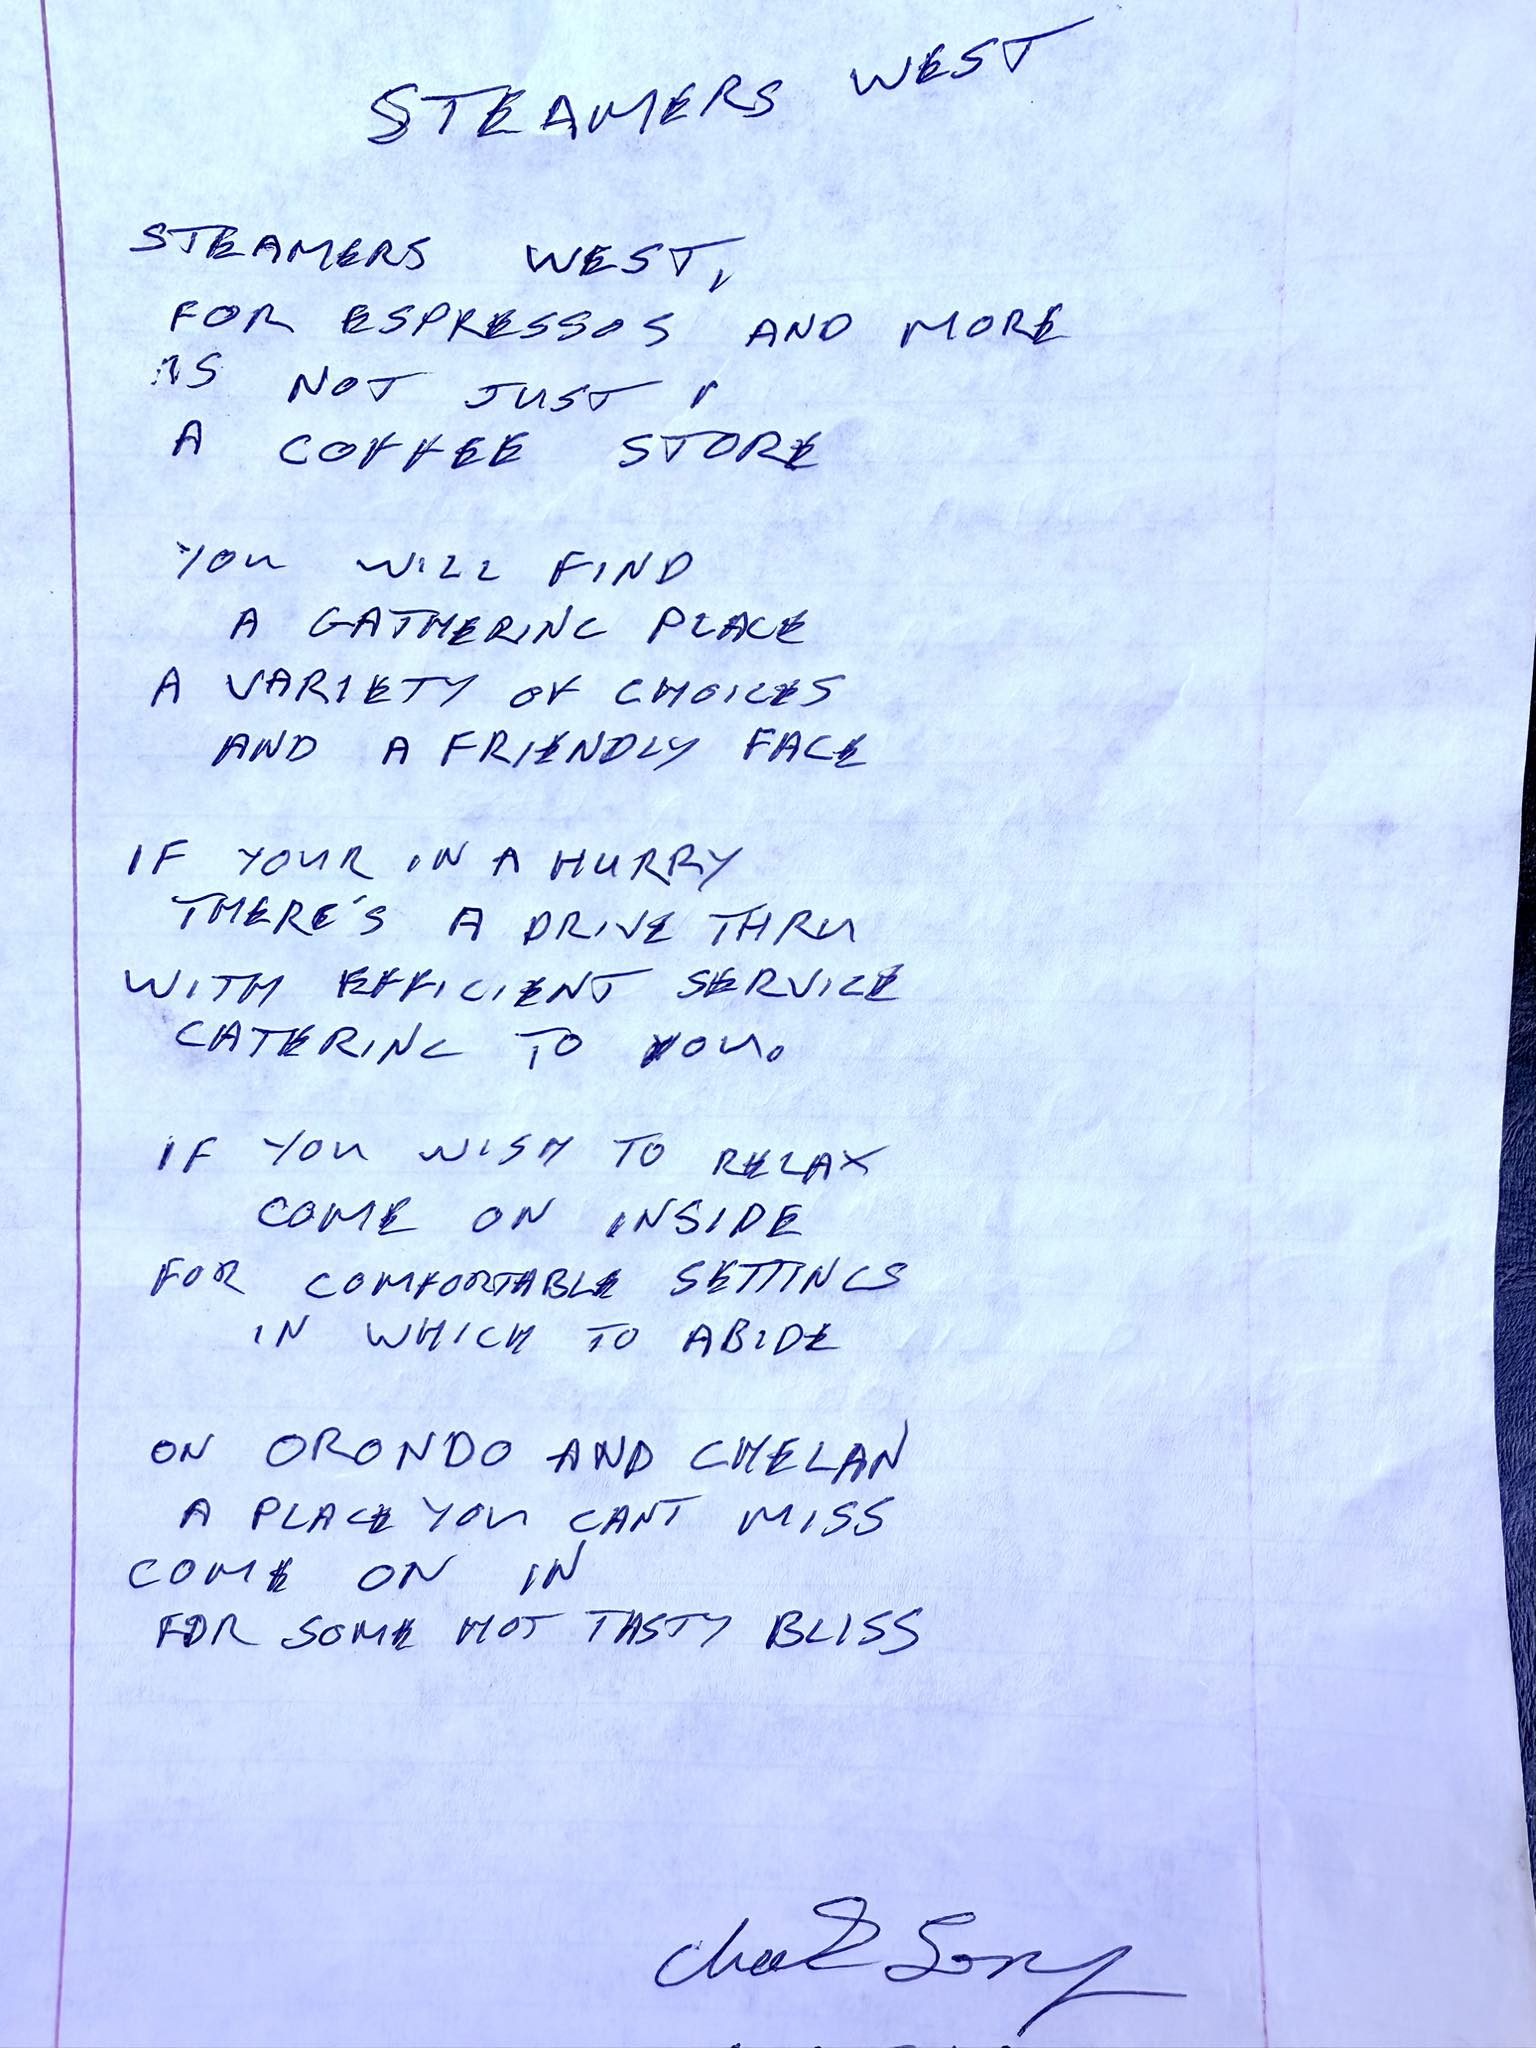 STEAMERS WEST
STEAMERS WEST,
FOR ESPRESSOS AND MORE
IS NOT JUST,
A COFFEE STORE
YOU WILL FIND
A GATHERING PLACE
A VARIETY OF CHOICES
AND A FRIENDLY FACE
IF YOUR IN A HURRY
THERE'S A DRIVE THRU
WITH EFFICIENT SERVICE
CATERING TO YOU.
IF YOU WISH TO RELAX
COME ON INSIDE
FOR COMFORTABLE SETTINGS
IN WHICH TO ABIDE
ON ORONDO AND CHELAN
A PLACE YOU CANT MISS
COME ON IN
FOR SOME HOT TASTY BLISS